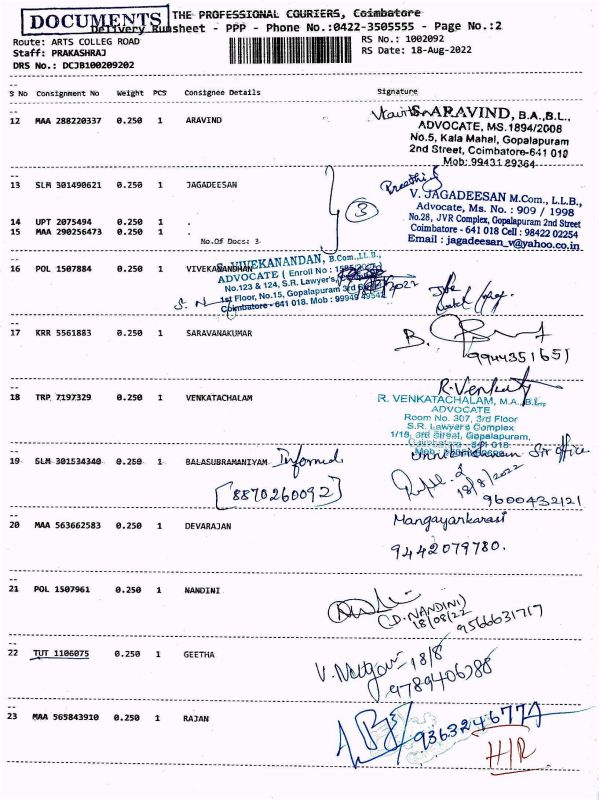 DOCUMENTS
THE PROFESSIONAL COURIERS, Coimbatore
Delivery Runsheet - PPP - Phone No.:0422-3505555 - Page No.:2
Route: ARTS COLLEG ROAD
RS No.: 1002092
Staff: PRAKASHRAJ
RS Date: 18-Aug-2022
DRS No.: DCJB100209202
S No Consignment No Weight PCS Consignee Details Signature
12 MAA 288220337 0.250 1 ARAVIND
S. ARAVIND, B.A.,B.L.,
ADVOCATE, MS.1894/2008
No.5, Kala Mahal, Gopalapuram
2nd Street, Coimbatore-641 018
Mob: 99431 89364
13 SLM 301490621 0.250 1 JAGADEESAN
Preethi
V. JAGADEESAN M.Com., L.L.B.,
Advocate, Ms. No. : 909 / 1998
No.28, JVR Complex, Gopalapuram 2nd Street
Coimbatore - 641 018 Cell : 98422 02254
Email : jagadeesan_v@yahoo.co.in
3
14 UPT 2075494 0.250 1 .
15 MAA 290256473 0.250 1 .
No.Of Docs: 3
16 POL 1507884 0.250 1 VIVEKANANDHAN
S. VIVEKANANDAN, B.Com.,LL.B.,
ADVOCATE ( Enroll No :
No.123 & 124, S.R. Lawyer's
1st Floor, No.15, Gopalapuram 3rd
Coimbatore - 641 018. Mob : 99949 49542
17 KRR 5561883 0.250 1 SARAVANAKUMAR
B.
9944351651
18 TRP 7197329 0.250 1 VENKATACHALAM
R. Venkat
R. VENKATACHALAM, M.A., B.L.,
ADVOCATE
Room No. 307, 3rd Floor
S.R. Lawyer's Complex
1/15, 3rd Street, Gopalapuram,
19 SLM 301534340 0.250 1 BALASUBRAMANIYAM Informed
Sir office
[8870260092]
18/8/2022
9600432121
20 MAA 563662583 0.250 1 DEVARAJAN
Mangayarkarasi
9442079780.
21 POL 1507961 0.250 1 NANDINI
(D. NANDINI)
18/08/22
9566631717
22 TUT 1106075 0.250 1 GEETHA
18/8
9789406288
23 MAA 565843910 0.250 1 RAJAN
HIR